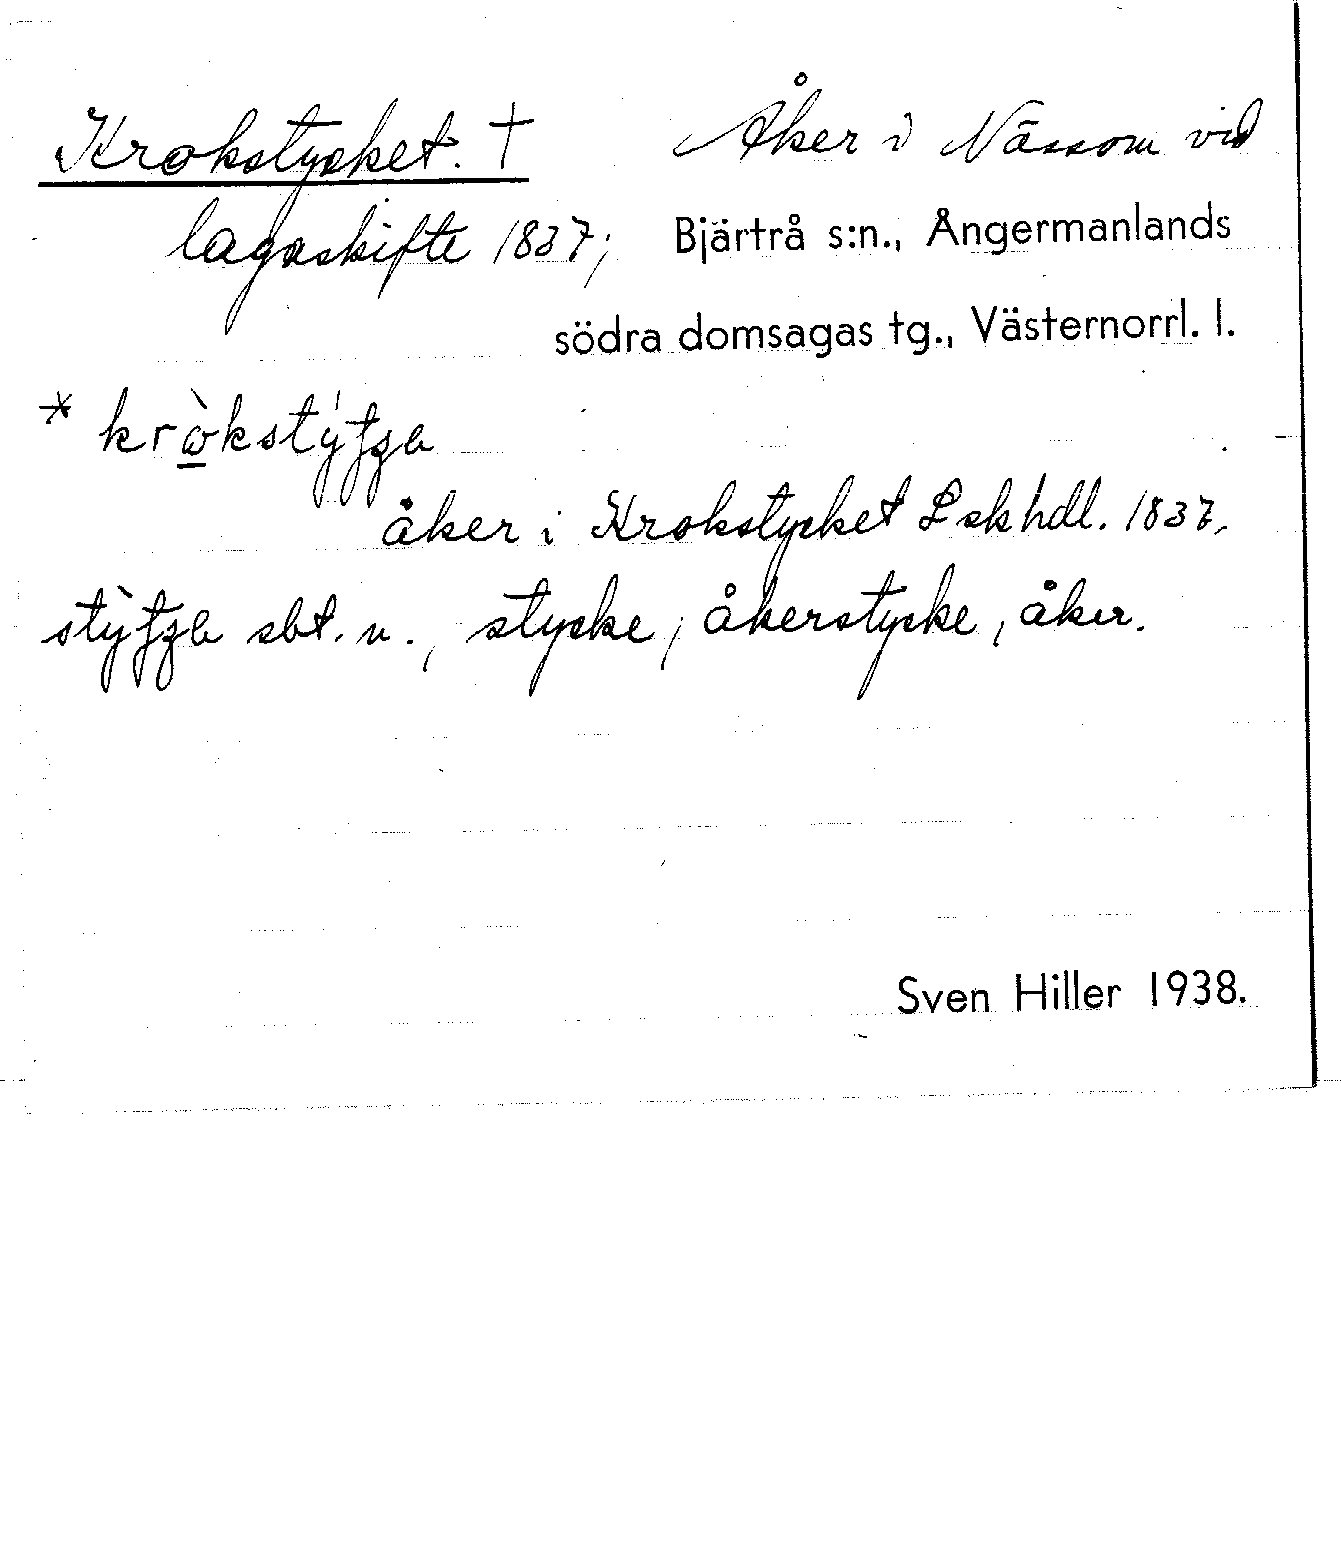 Krokstycket. † Åker i Nässom vid
lagaskifte 1837; Bjärtrå s:n., Ångermanlands
södra domsagas tg., Västernorrl. l.
åker i Krokstycket Lskhdl. 1837,
sbt. n., stycke; åkerstycke, åker.
Sven Hiller 1938.